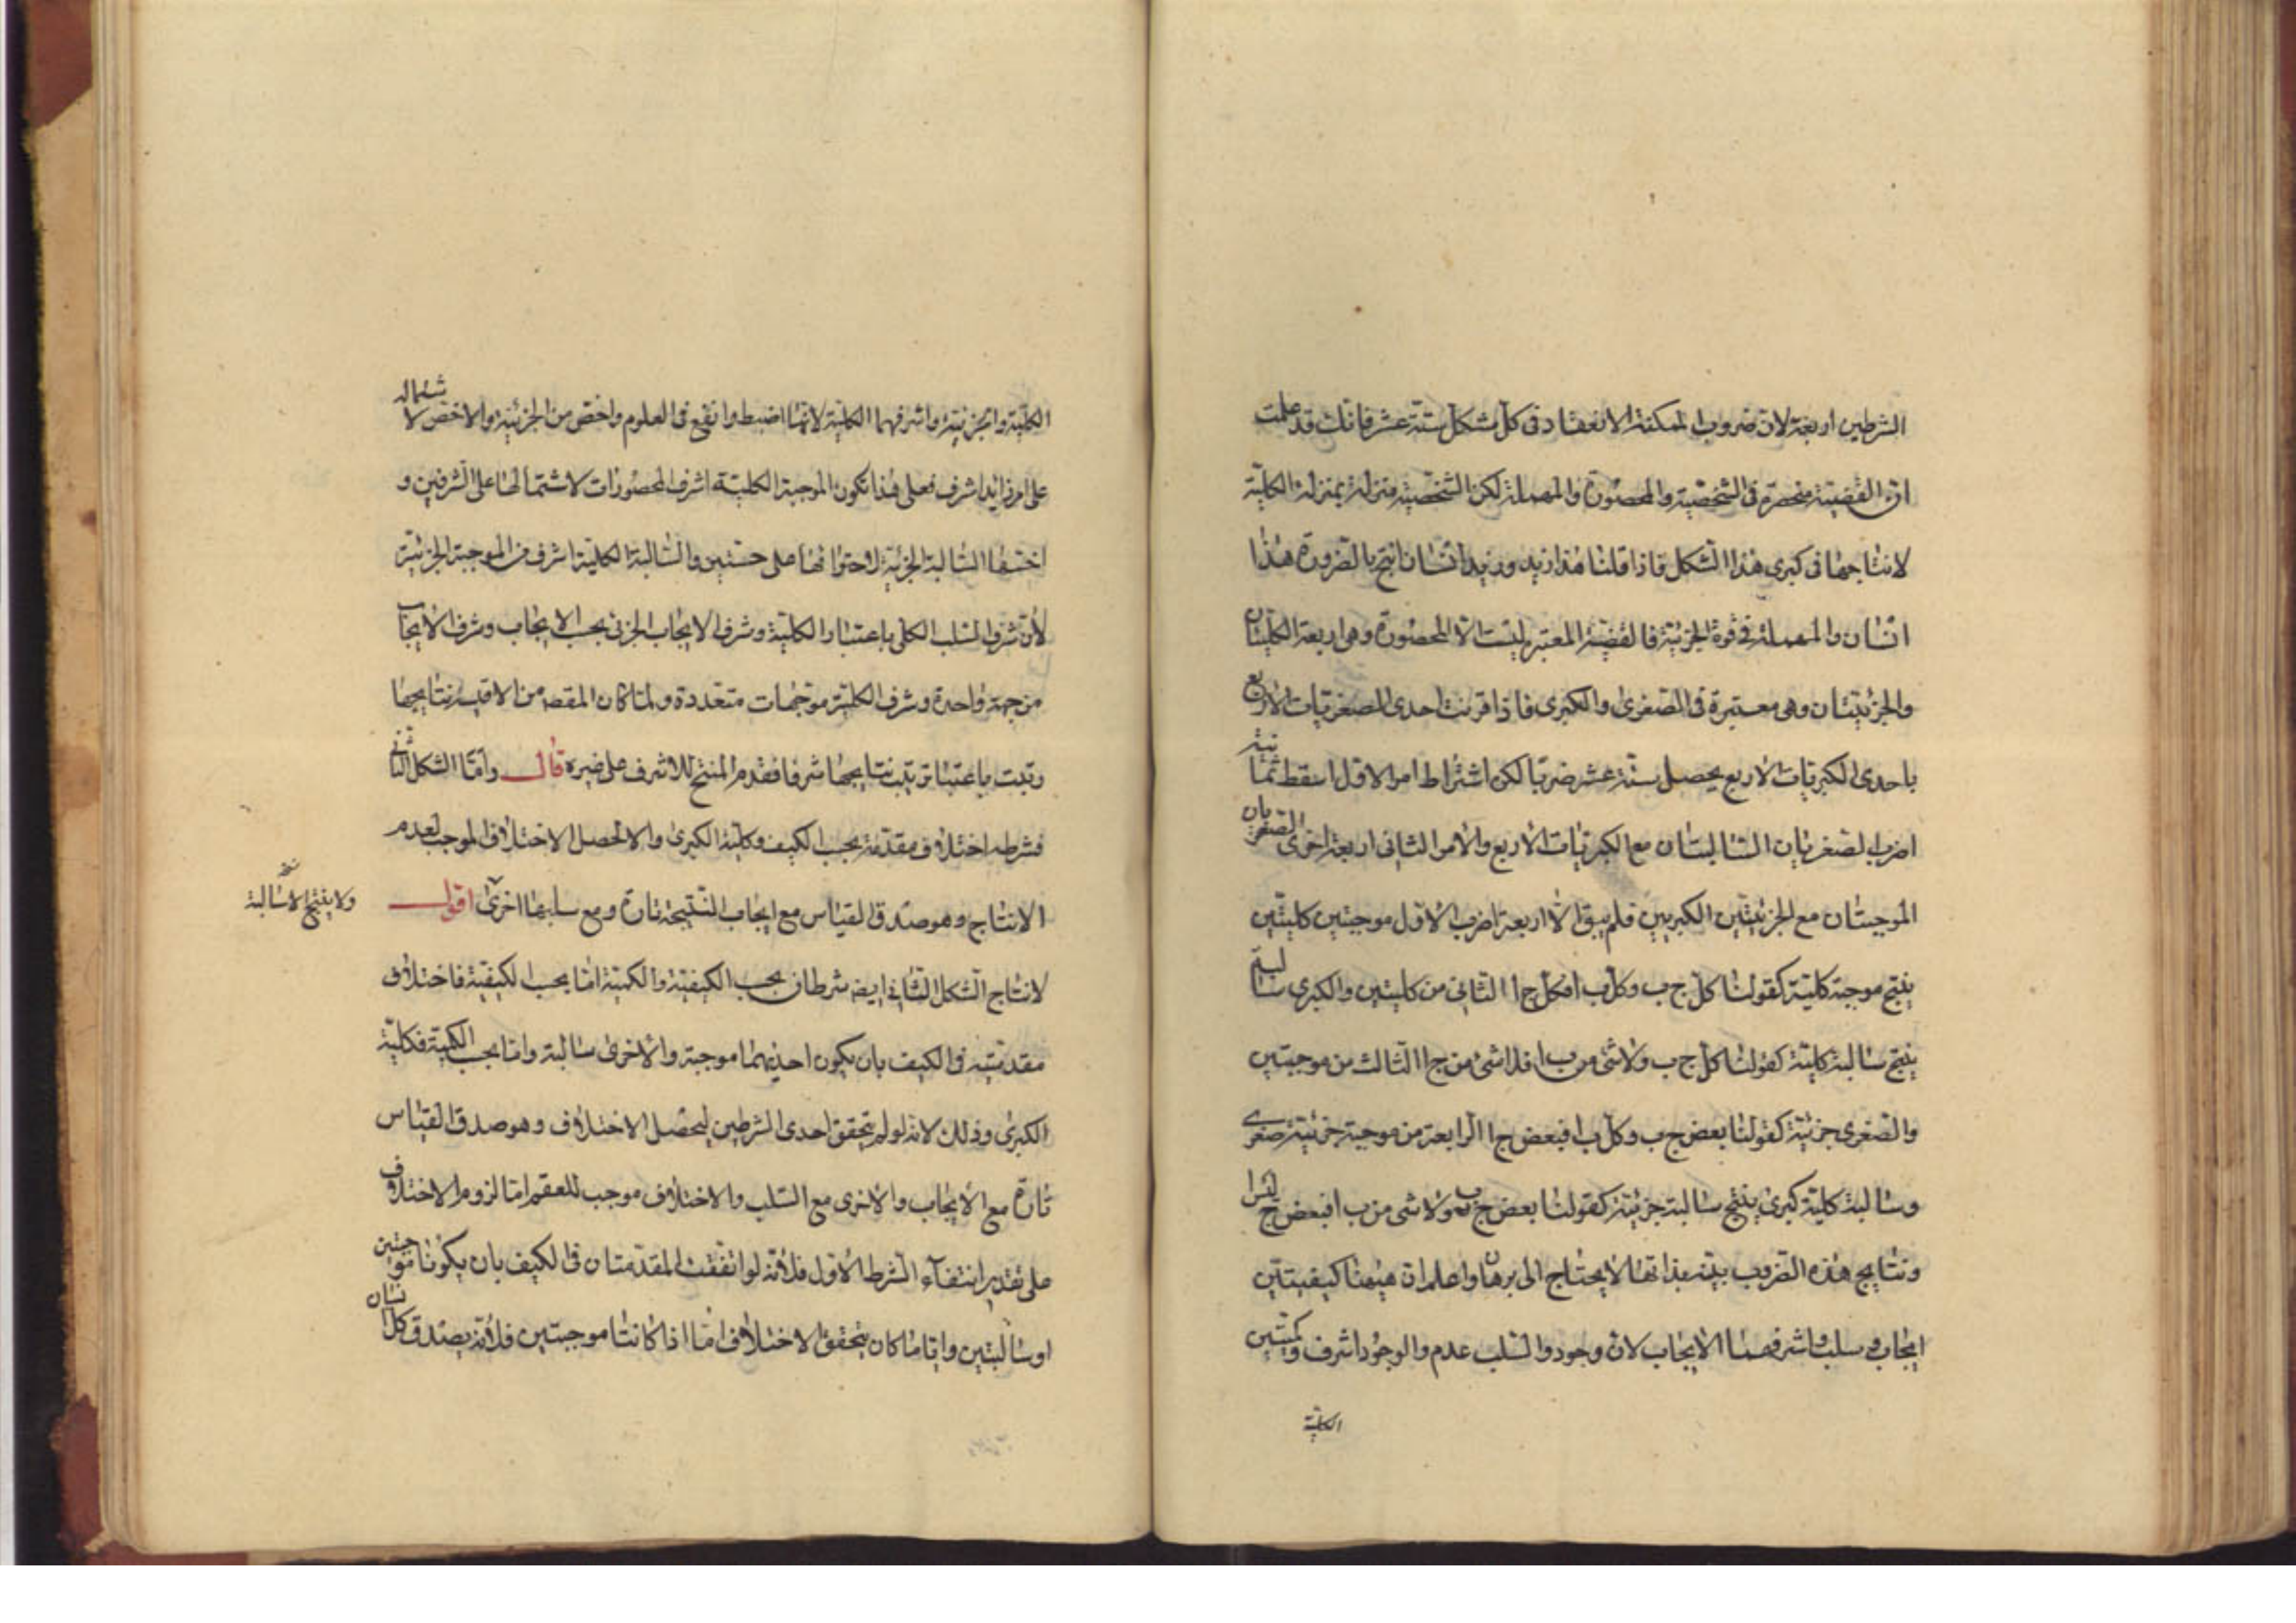 الشرطين اربعة لان ضروب الممكنة الانعقاد فى كل شكل ستة عشر فانك قد علمت
ان القضية منحصرة فى الشخصية والمحصورة والمهملة لكن الشخصية منزلة بمنزلة الكلية
لانتاجها فى كبرى هذا الشكل فاذا قلنا هذا زيد وزيد انسان انتج بالضرورة هذا
انسان والمهملة فى قوة الجزئية فالقضية المعتبرة ليست الا المحصورة وهى اربعة الكليتان
والجزئيتان وهى معتبرة فى الصغرى والكبرى فاذا قرنت احدى الصغريات الاربع
باحدى الكبريات الاربع يحصل ستة عشر ضربا لكن اشتراط امر الاول اسقط ثمانية
اضرب الصغريان السالبتان مع الكبريات الاربع والامر الثانى اربعة اخرى الصغريان
الموجبتان مع الجزئيتين الكبريين فلم يبق الا اربعة اضرب الاول موجبتين كليتين
ينتج موجبة كلية كقولنا كل ج ب وكل ب ا فكل ج ا الثانى من كليتين والكبرى سالبة
ينتج سالبة كلية كقولنا كل ج ب ولاشئ من ب ا فلاشئ من ج ا الثالث من موجبتين
والصغرى جزئية كقولنا بعض ج ب وكل ب ا فبعض ج ا الرابعة من موجبة جزئية صغرى
وسالبة كلية كبرى ينتج سالبة جزئية كقولنا بعض ج ب ولاشى من ب ا فبعض ج ليس ا
ونتايج هذه الضروب بينة بذاتها لايحتاج الى برهان واعلم ان هيهنا كيفيتين
ايجاب و سلب واشرفهما الايجاب لان وجود والسلب عدم والوجود اشرف وكميتين
الكلية
الكلية والجزئية واشرفهما الكلية لانها اضبط وانفع فى العلوم واخص من الجزئية والاخص لاشتماله
على امر زايد اشرف فعلى هذا تكون الموجبة الكلية اشرف المحصورات لاشتمالها على الشرفين و
اخسها السالبة الجزئية لاحتوائها على خستين والسالبة الكلية اشرف من الموجبة الجزئية
لان شرف السلب الكلى باعتبار الكلية وشرف الايجاب الجزئى بحسب الايجاب وشرف الايجاب
من جهة واحدة وشرف الكلية من جهات متعددة ولما كان المقصد من الاقيسة نتايجها
رتبت باعتبار ترتيب نتايجها شرفا فقدم المنتج للاشرف على غيره قال واما الشكل الثانى
فشرطه اختلاف مقدمتيه بحسب الكيف وكلية الكبرى والا لحصل الاختلاف الموجب لعدم
الانتاج وهو صدق القياس مع ايجاب النتيجة تارة ومع سلبها اخرى اقول
ولا ينتج الا سالبة نسخة
لانتاج الشكل الثانى ايضا شرطان بحسب الكيفية والكمية اما بحسب الكيفية فاختلاف
مقدمتيه فى الكيف بان يكون احديهما موجبة والاخرى سالبة واما بحسب الكمية فكلية
الكبرى وذلك لانه لو لم يتحقق احدى الشرطين ليحصل الاختلاف وهو صدق القياس
تارة مع الايجاب والاخرى مع السلب والاختلاف موجب للعقم اما لزوم الاختلاف
على تقدير انتفاء الشرط الاول فلانه لو اتفقت المقدمتان فى الكيف بان يكونا موجبتين
او سالبتين واياما كان يتحقق الاختلاف اما اذا كانتا موجبتين فلانه يصدق كل انسان